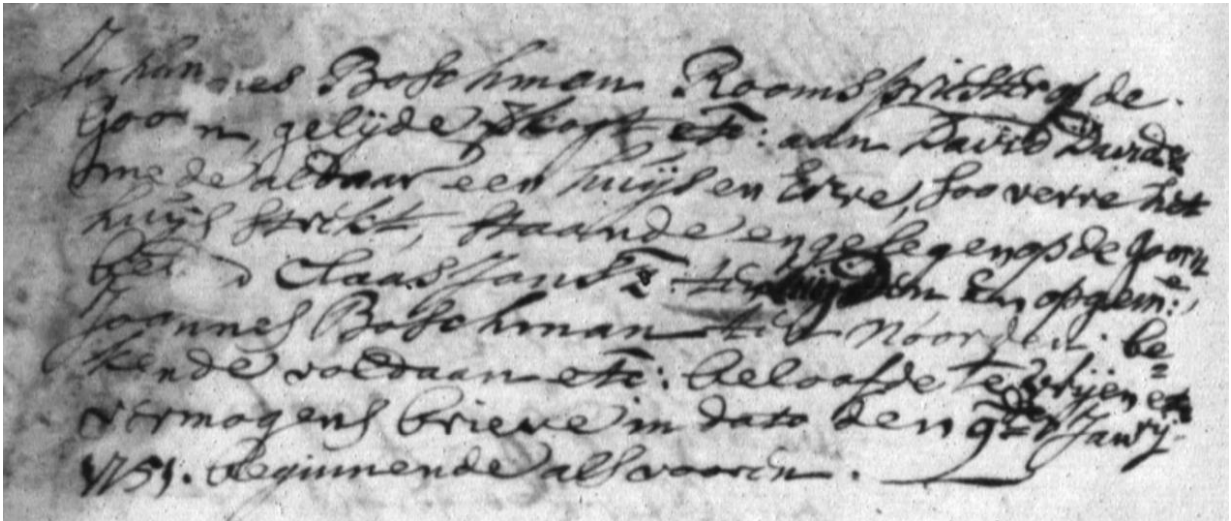 Johannes Boschman Rooms priester op de
Goorn, gelijde verkogt etc: aan David Davidsz
mede aldaar een huijs en Erve, soo verre het
huijs strekt, staande en gelegen op de Goorn
bel. Claas Jansz. ten Zuijden En opgem:e
Joannes Boschman ten Noorden. be=
kende voldaan etc: beloofde te vrijen etc
vermogens brieve in dato den 9de Janrij
1751. beginnende als vooren.